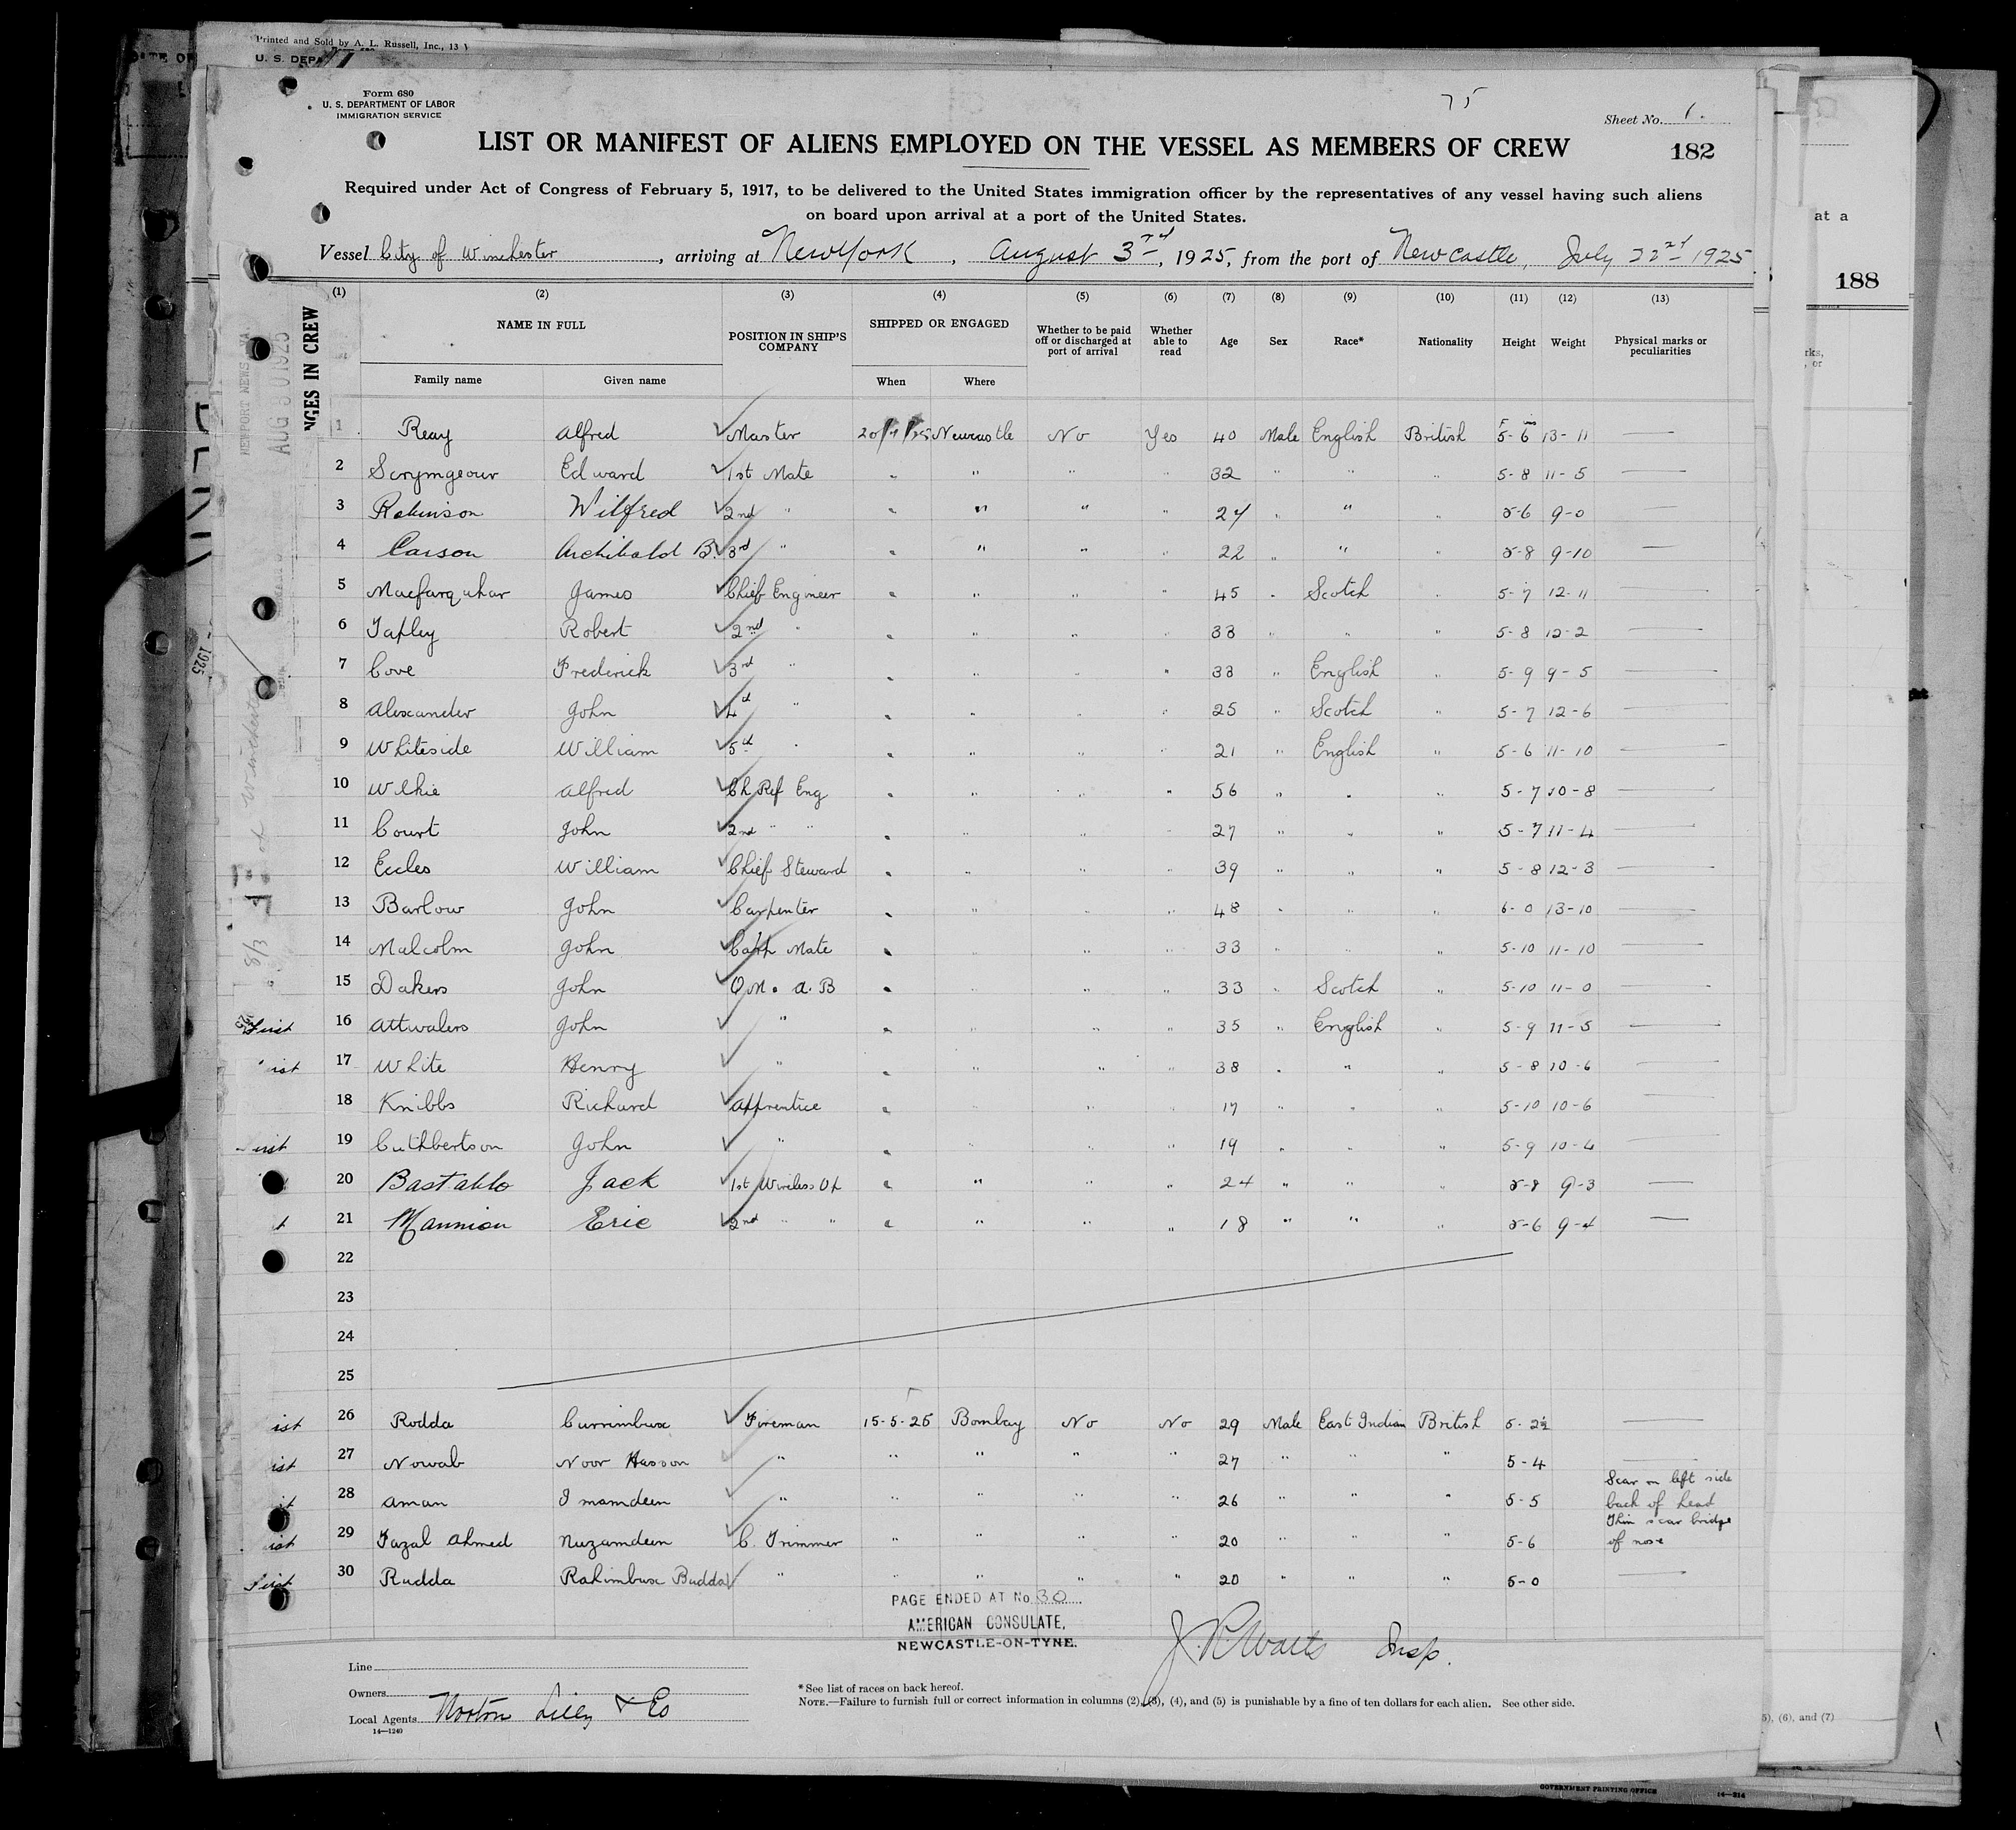 Printed and Sold by A. L. Russell, Inc., 13
U. S. DEP
Form 680
U. S. DEPARTMENT OF LABOR
IMMIGRATION SERVICE
75
Sheet No. 1.
LIST OR MANIFEST OF ALIENS EMPLOYED ON THE VESSEL AS MEMBERS OF CREW
182
Required under Act of Congress of February 5, 1917, to be delivered to the United States immigration officer by the representatives of any vessel having such aliens
on board upon arrival at a port of the United States.
at a
Vessel City of Winchester, arriving at New York, August 3rd, 1925, from the port of Newcastle, July 22nd 1925
188
(1) (2) (3) (4) (5) (6) (7) (8) (9) (10) (11) (12) (13)
NGES IN CREW
NAME IN FULL POSITION IN SHIP'S COMPANY SHIPPED OR ENGAGED Whether to be paid off or discharged at port of arrival Whether able to read Age Sex Race* Nationality Height Weight Physical marks or peculiarities
Family name Given name When Where
1 Reay Alfred Master Newcastle No Yes 40 Male English British 5-6 13-11 —
2 Scrymgeour Edward 1st Mate " " " " 32 " " " 5-8 11-5 —
3 Robinson Wilfred 2nd " " " " " 24 " " " 5-6 9-0 —
4 Carson Archibald B. 3rd " " " " " 22 " " " 5-8 9-10 —
5 Macfarquhar James Chief Engineer " " " " 45 " Scotch " 5-7 12-11 —
6 Tapley Robert 2nd " " " " " 33 " " " 5-8 12-2 —
7 Cove Frederick 3rd " " " " " 33 " English " 5-9 9-5 —
8 Alexander John 4th " " " " " 25 " Scotch " 5-7 12-6 —
9 Whiteside William 5th " " " " " 21 " English " 5-6 11-10 —
10 Wilkie Alfred Ch Ref Eng " " " " 56 " " " 5-7 10-8 —
11 Court John 2nd " " " " " " 27 " " " 5-7 11-4 —
12 Eccles William Chief Steward " " " " 39 " " " 5-8 12-3 —
13 Barlow John Carpenter " " " " 48 " " " 6-0 13-10 —
14 Malcolm John Carp Mate " " " " 33 " " " 5-10 11-10 —
15 Dakers John Q.M. A.B " " " " 33 " Scotch " 5-10 11-0 —
First 16 Attwaters John " " " " " 35 " English " 5-9 11-5 —
ist 17 White Henry " " " " " 38 " " " 5-8 10-6 —
18 Knibbs Richard Apprentice " " " " 17 " " " 5-10 10-6 —
First 19 Cuthbertson John " " " " " 19 " " " 5-9 10-4 —
20 Bastable Jack 1st Wireless Op " " " " 24 " " " 5-8 9-3 —
21 Mannion Eric 2nd " " " " " " 18 " " " 5-6 9-4 —
22
23
24
25
ist 26 Rodda Currimbux Fireman 15-5-25 Bombay No No 29 Male East Indian British 5-2½ —
ist 27 Nowab Noor Hasson " " " " " 27 " " " 5-4 —
28 Aman Imamdeen " " " " " 26 " " " 5-5 Scar on left side back of head
ist 29 Fazal Ahmed Nuzamdeen C. Trimmer " " " " 20 " " " 5-6 Thin scar bridge of nose
First 30 Rudda Rahimbux Budda " " " " " 20 " " " 5-0 —
PAGE ENDED AT No. 30
AMERICAN CONSULATE,
NEWCASTLE-ON-TYNE.
Insp.
Line
Owners
Local Agents Norton Lilly & Co
14—1240
*See list of races on back hereof.
NOTE.—Failure to furnish full or correct information in columns (2), (3), (4), and (5) is punishable by a fine of ten dollars for each alien. See other side.
5), (6), and (7)
GOVERNMENT PRINTING OFFICE
14—214